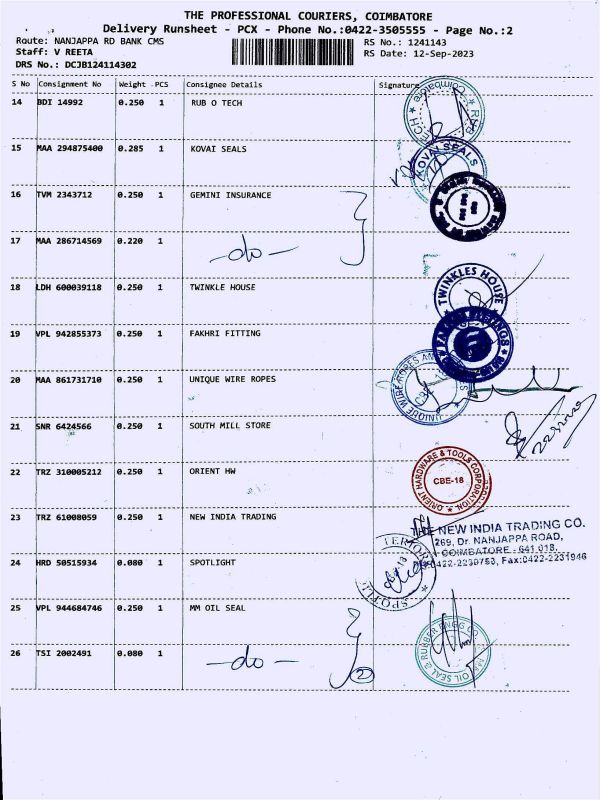 THE PROFESSIONAL COURIERS, COIMBATORE
Delivery Runsheet - PCX - Phone No.:0422-3505555 - Page No.:2
Route: NANJAPPA RD BANK CMS
RS No.: 1241143
Staff: V REETA
RS Date: 12-Sep-2023
DRS No.: DCJB124114302
S No Consignment No Weight PCS Consignee Details Signature
14 BDI 14992 0.250 1 RUB O TECH
15 MAA 294875400 0.285 1 KOVAI SEALS
KOVAI SEALS
16 TVM 2343712 0.250 1 GEMINI INSURANCE
17 MAA 286714569 0.220 1
-do-
18 LDH 600039118 0.250 1 TWINKLE HOUSE
TWINKLES HOUSE
19 VPL 942855373 0.250 1 FAKHRI FITTING
20 MAA 861731710 0.250 1 UNIQUE WIRE ROPES
UNIQUE WIRE ROPES
CBE
21 SNR 6424566 0.250 1 SOUTH MILL STORE
22 TRZ 310005212 0.250 1 ORIENT HW
ORIENT HARDWARE & TOOLS CORPORATION
CBE-18
23 TRZ 61008059 0.250 1 NEW INDIA TRADING
THE NEW INDIA TRADING CO.
269, Dr. NANJAPPA ROAD,
COIMBATORE - 641 018.
Fax:0422-2231946
24 HRD 50515934 0.080 1 SPOTLIGHT
25 VPL 944684746 0.250 1 MM OIL SEAL
OIL SEAL & RUBBER ENGG CO.
26 TSI 2002491 0.080 1
-do-
2